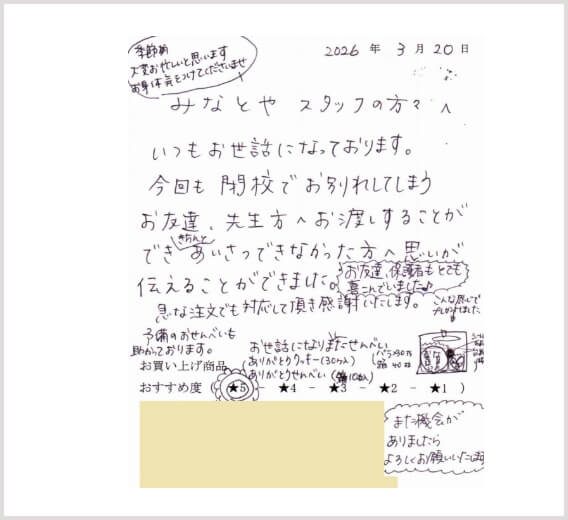 季節的
大変お忙しいと思います
お身体気をつけてくださいませ
2026 年 3 月 20 日
みなとや スタッフの方々へ
いつもお世話になっております。
今回も 閉校で お別れしてしまう
お友達、先生方へお渡しすることが
でき きちんと あいさつできなかった方へ 思いが
伝えることができました。
お友達、保護者もとても
喜こんでいました♪
急な注文でも対応して頂き感謝いたします。
こんな感じで
予備のおせんべいも
助かっております。
お世話になりましたせんべい (バラ
お買い上げ商品 (ありがとうクッキー(30ヶ入)
ありがとうせんべい
おすすめ度 ( ★5 - ★4 - ★3 - ★2 - ★1 )
また機会が
ありましたら
よろしくお願いいたします